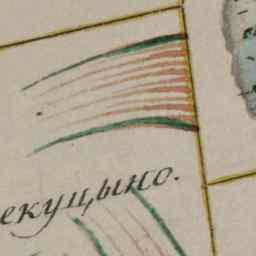 екуцыно.